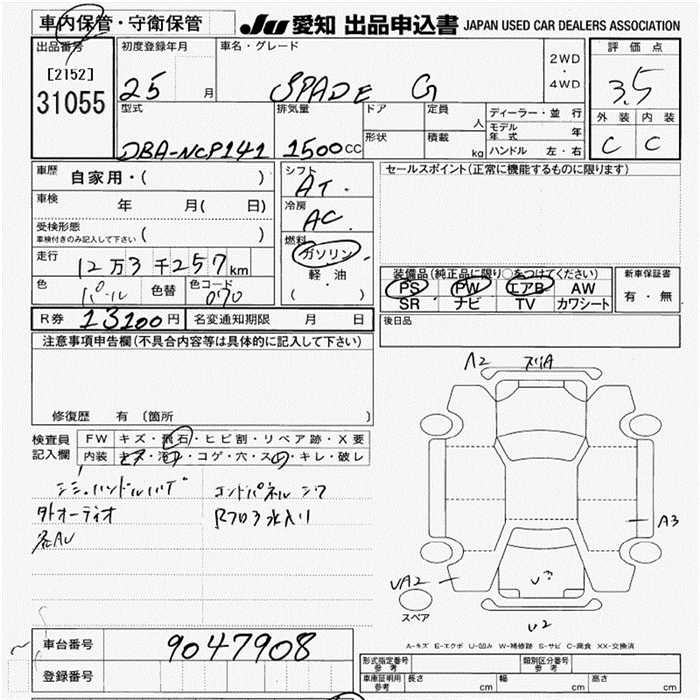 車内保管・守衛保管 JU 愛知 出品申込書 JAPAN USED CAR DEALERS ASSOCIATION
出品番号 初度登録年月 車名・グレード 2WD・4WD 評価点
[2152] 25 月 SPADE G 3.5
31055 型式 排気量 ドア 定員 人 ディーラー・並 行 外装 内装
DBA-NCP141 1500cc 形状 積載 kg モデル年式 年 C C
ハンドル 左・右
車歴 自家用・( ) シフト AT. セールスポイント(正常に機能するものに限ります)
車検 年 月( 日) 冷房 AC.
受検形態 ( )
車検付きのみ記入して下さい
燃料 ガソリン
走行 12万3千257km 軽油 装備品(純正品に限り○をつけてください) 新車保証書
色 パール 色替 色コード 070 ( ) PS PW エアB AW 有・無
SR ナビ TV カワシート
R券 13100円 名変通知期限 月 日 後日品
注意事項申告欄(不具合内容等は具体的に記入して下さい)
修復歴 有 〔箇所 〕
A2 スリA
検査員 FW キズ・飛石・ヒビ割・リペア跡・X要
記入欄 内装 キズ・汚れ・コゲ・穴・スレ・キレ・破レ
外オーディオ
A3
UA2 U2
スペア
A-キズ E-エクボ U-凹み W-補修跡 S-サビ C-腐食 XX-交換済
車台番号 9047908
登録番号
形式指定番号 参考 類別区分番号 参考
車庫証明用 参考 長さ cm 幅 cm 高さ cm